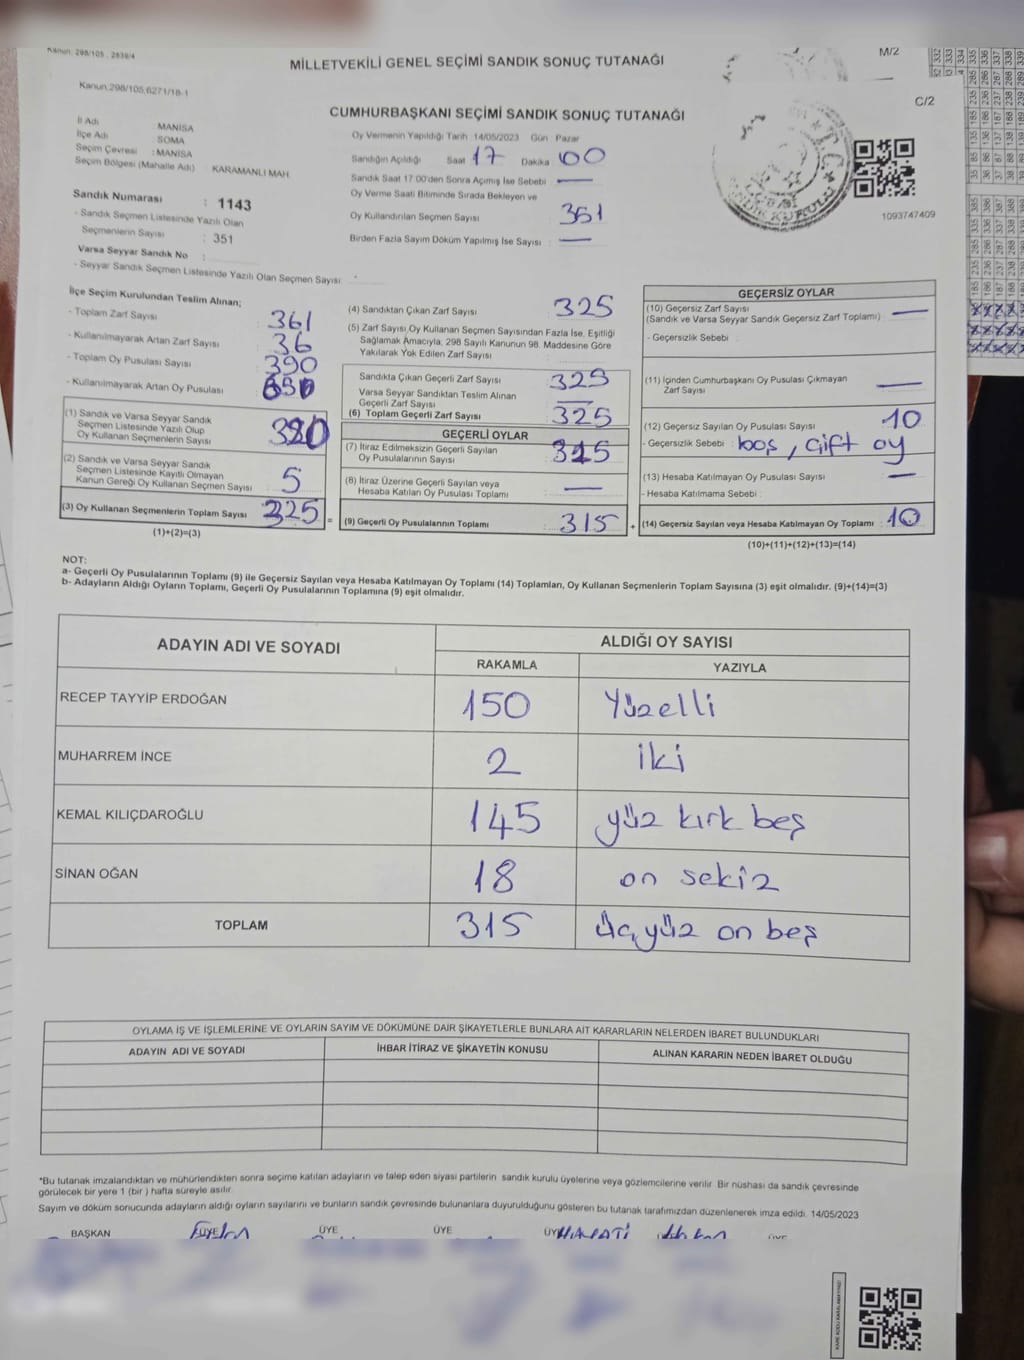 Kanun: 298/105, 2839/4
M/2
MİLLETVEKİLİ GENEL SEÇİMİ SANDIK SONUÇ TUTANAĞI
Kanun,298/105,6271/18-1
C/2
CUMHURBAŞKANI SEÇİMİ SANDIK SONUÇ TUTANAĞI
İl Adı MANİSA
İlçe Adı SOMA
Seçim Çevresi : MANİSA
Seçim Bölgesi (Mahalle Adı) KARAMANLI MAH.
Sandık Numarası : 1143
- Sandık Seçmen Listesinde Yazılı Olan
Seçmenlerin Sayısı : 351
Varsa Seyyar Sandık No :
- Seyyar Sandık Seçmen Listesinde Yazılı Olan Seçmen Sayısı
Oy Vermenin Yapıldığı Tarih 14/05/2023 Gün Pazar
Sandığın Açıldığı Saat 17 Dakika 00
Sandık Saat 17:00'den Sonra Açmış İse Sebebi —
Oy Verme Saati Bitiminde Sırada Bekleyen ve
Oy Kullandırılan Seçmen Sayısı 361
Birden Fazla Sayım Döküm Yapılmış İse Sayısı : —
T.C.
SANDIK KURULU
1093747409
İlçe Seçim Kurulundan Teslim Alınan;
- Toplam Zarf Sayısı : 361
- Kullanılmayarak Artan Zarf Sayısı : 36
- Toplam Oy Pusulası Sayısı : 390
- Kullanılmayarak Artan Oy Pusulası
(1) Sandık ve Varsa Seyyar Sandık
Seçmen Listesinde Yazılı Olup
Oy Kullanan Seçmenlerin Sayısı : 320
(2) Sandık ve Varsa Seyyar Sandık
Seçmen Listesinde Kayıtlı Olmayan
Kanun Gereği Oy Kullanan Seçmen Sayısı 5
(3) Oy Kullanan Seçmenlerin Toplam Sayısı 325 =
(1)+(2)=(3)
(4) Sandıktan Çıkan Zarf Sayısı : 325
(5) Zarf Sayısı,Oy Kullanan Seçmen Sayısından Fazla İse, Eşitliği
Sağlamak Amacıyla, 298 Sayılı Kanunun 98. Maddesine Göre
Yakılarak Yok Edilen Zarf Sayısı
Sandıkta Çıkan Geçerli Zarf Sayısı : 325
Varsa Seyyar Sandıktan Teslim Alınan
Geçerli Zarf Sayısı —
(6) Toplam Geçerli Zarf Sayısı 325
GEÇERLİ OYLAR
(7) İtiraz Edilmeksizin Geçerli Sayılan
Oy Pusulalarının Sayısı : 315
(8) İtiraz Üzerine Geçerli Sayılan veya
Hesaba Katılan Oy Pusulası Toplamı : —
(9) Geçerli Oy Pusulalarının Toplamı : 315 +
GEÇERSİZ OYLAR
(10) Geçersiz Zarf Sayısı
(Sandık ve Varsa Seyyar Sandık Geçersiz Zarf Toplamı) : —
- Geçersizlik Sebebi :
(11) İçinden Cumhurbaşkanı Oy Pusulası Çıkmayan
Zarf Sayısı : —
(12) Geçersiz Sayılan Oy Pusulası Sayısı : 10
- Geçersizlik Sebebi : boş, çift oy
(13) Hesaba Katılmayan Oy Pusulası Sayısı : —
- Hesaba Katılmama Sebebi :
(14) Geçersiz Sayılan veya Hesaba Katılmayan Oy Toplamı : 10
(10)+(11)+(12)+(13)=(14)
NOT:
a- Geçerli Oy Pusulalarının Toplamı (9) ile Geçersiz Sayılan veya Hesaba Katılmayan Oy Toplamı (14) Toplamları, Oy Kullanan Seçmenlerin Toplam Sayısına (3) eşit olmalıdır. (9)+(14)=(3)
b- Adayların Aldığı Oyların Toplamı, Geçerli Oy Pusulalarının Toplamına (9) eşit olmalıdır.
ADAYIN ADI VE SOYADI ALDIĞI OY SAYISI
RAKAMLA YAZIYLA
RECEP TAYYİP ERDOĞAN 150 Yüzelli
MUHARREM İNCE 2 iki
KEMAL KILIÇDAROĞLU 145 yüz kırk beş
SİNAN OĞAN 18 on sekiz
TOPLAM 315 Üçyüz on beş
OYLAMA İŞ VE İŞLEMLERİNE VE OYLARIN SAYIM VE DÖKÜMÜNE DAİR ŞİKAYETLERLE BUNLARA AİT KARARLARIN NELERDEN İBARET BULUNDUKLARI
ADAYIN ADI VE SOYADI İHBAR İTİRAZ VE ŞİKAYETİN KONUSU ALINAN KARARIN NEDEN İBARET OLDUĞU
*Bu tutanak imzalandıktan ve mühürlendikten sonra seçime katılan adayların ve talep eden siyasi partilerin sandık kurulu üyelerine veya gözlemcilerine verilir. Bir nüshası da sandık çevresinde
görülecek bir yere 1 (bir ) hafta süreyle asılır.
Sayım ve döküm sonucunda adayların aldığı oyların sayılarını ve bunların sandık çevresinde bulunanlara duyurulduğunu gösteren bu tutanak tarafımızdan düzenlenerek imza edildi. 14/05/2023
BAŞKAN ÜYE ÜYE ÜYE ÜYE ÜYE